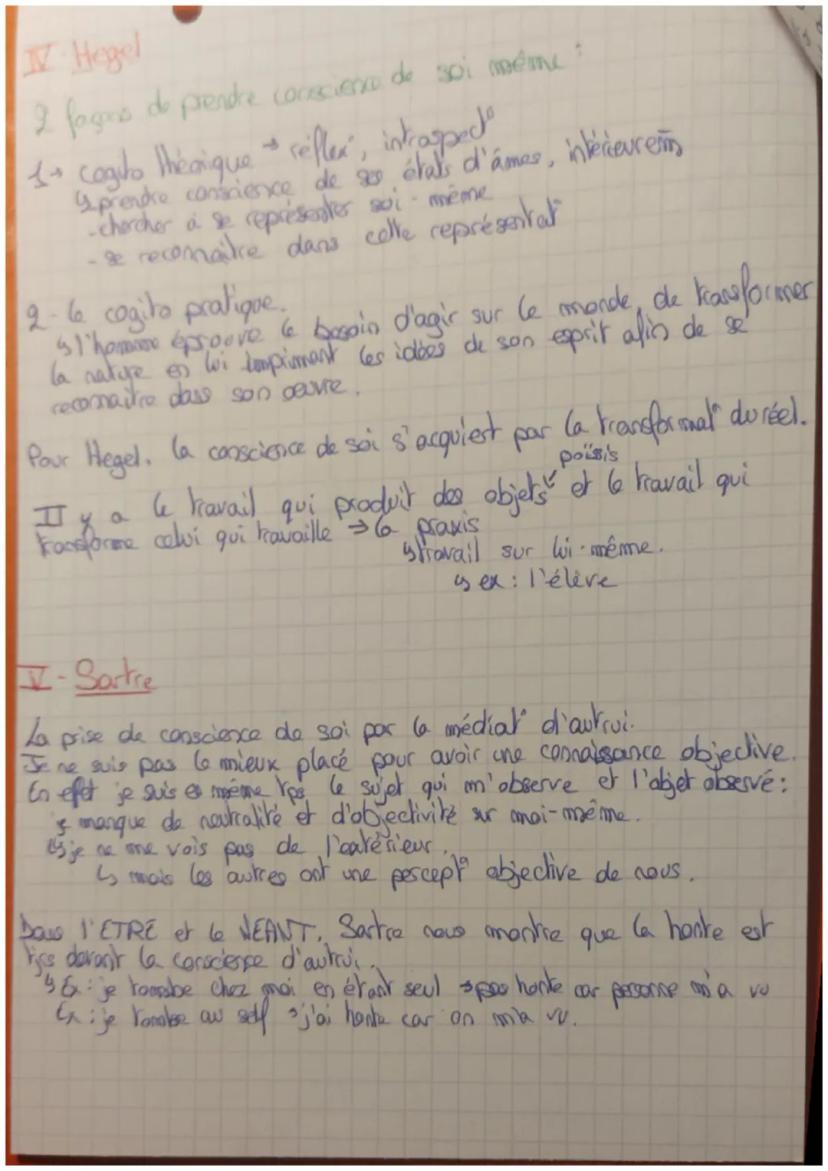 IV - Hegel
2 façons de prendre conscience de soi même :
1→ cogito théorique → réflex°, intraspect°
↳ prendre conscience de ses états d'âmes, intérieurem
- chercher à se représenter soi-même
- se reconnaître dans cette représentat°
2 - le cogito pratique.
↳ l'homme éprouve le besoin d'agir sur le monde, de transformer
la nature en lui impriment les idées de son esprit afin de se
reconnaitre dans son œuvre.
Pour Hegel, la conscience de soi s'acquiert par la transformat° du réel.
poïsis
Il y a le travail qui produit des objets et le travail qui
transforme celui qui travaille → la praxis
↳ travail sur lui-même.
↳ ex : l'élève
V - Sartre
La prise de conscience de soi par la médiat° d'autrui.
Je ne suis pas le mieux placé pour avoir une connaissance objective.
En effet je suis en même tps le sujet qui m'observe et l'objet observé :
↳ manque de neutralité et d'objectivité sur moi-même.
↳ je ne me vois pas de l'extérieur.
↳ mais les autres ont une percept° objective de nous.
Dans l'ETRE et le NEANT, Sartre nous montre que la honte est
tjs devant la conscience d'autrui.
↳ Ex : je tombe chez moi en étant seul → pas honte car personne m'a vu
Ex : je tombe au self → j'ai honte car on m'a vu.